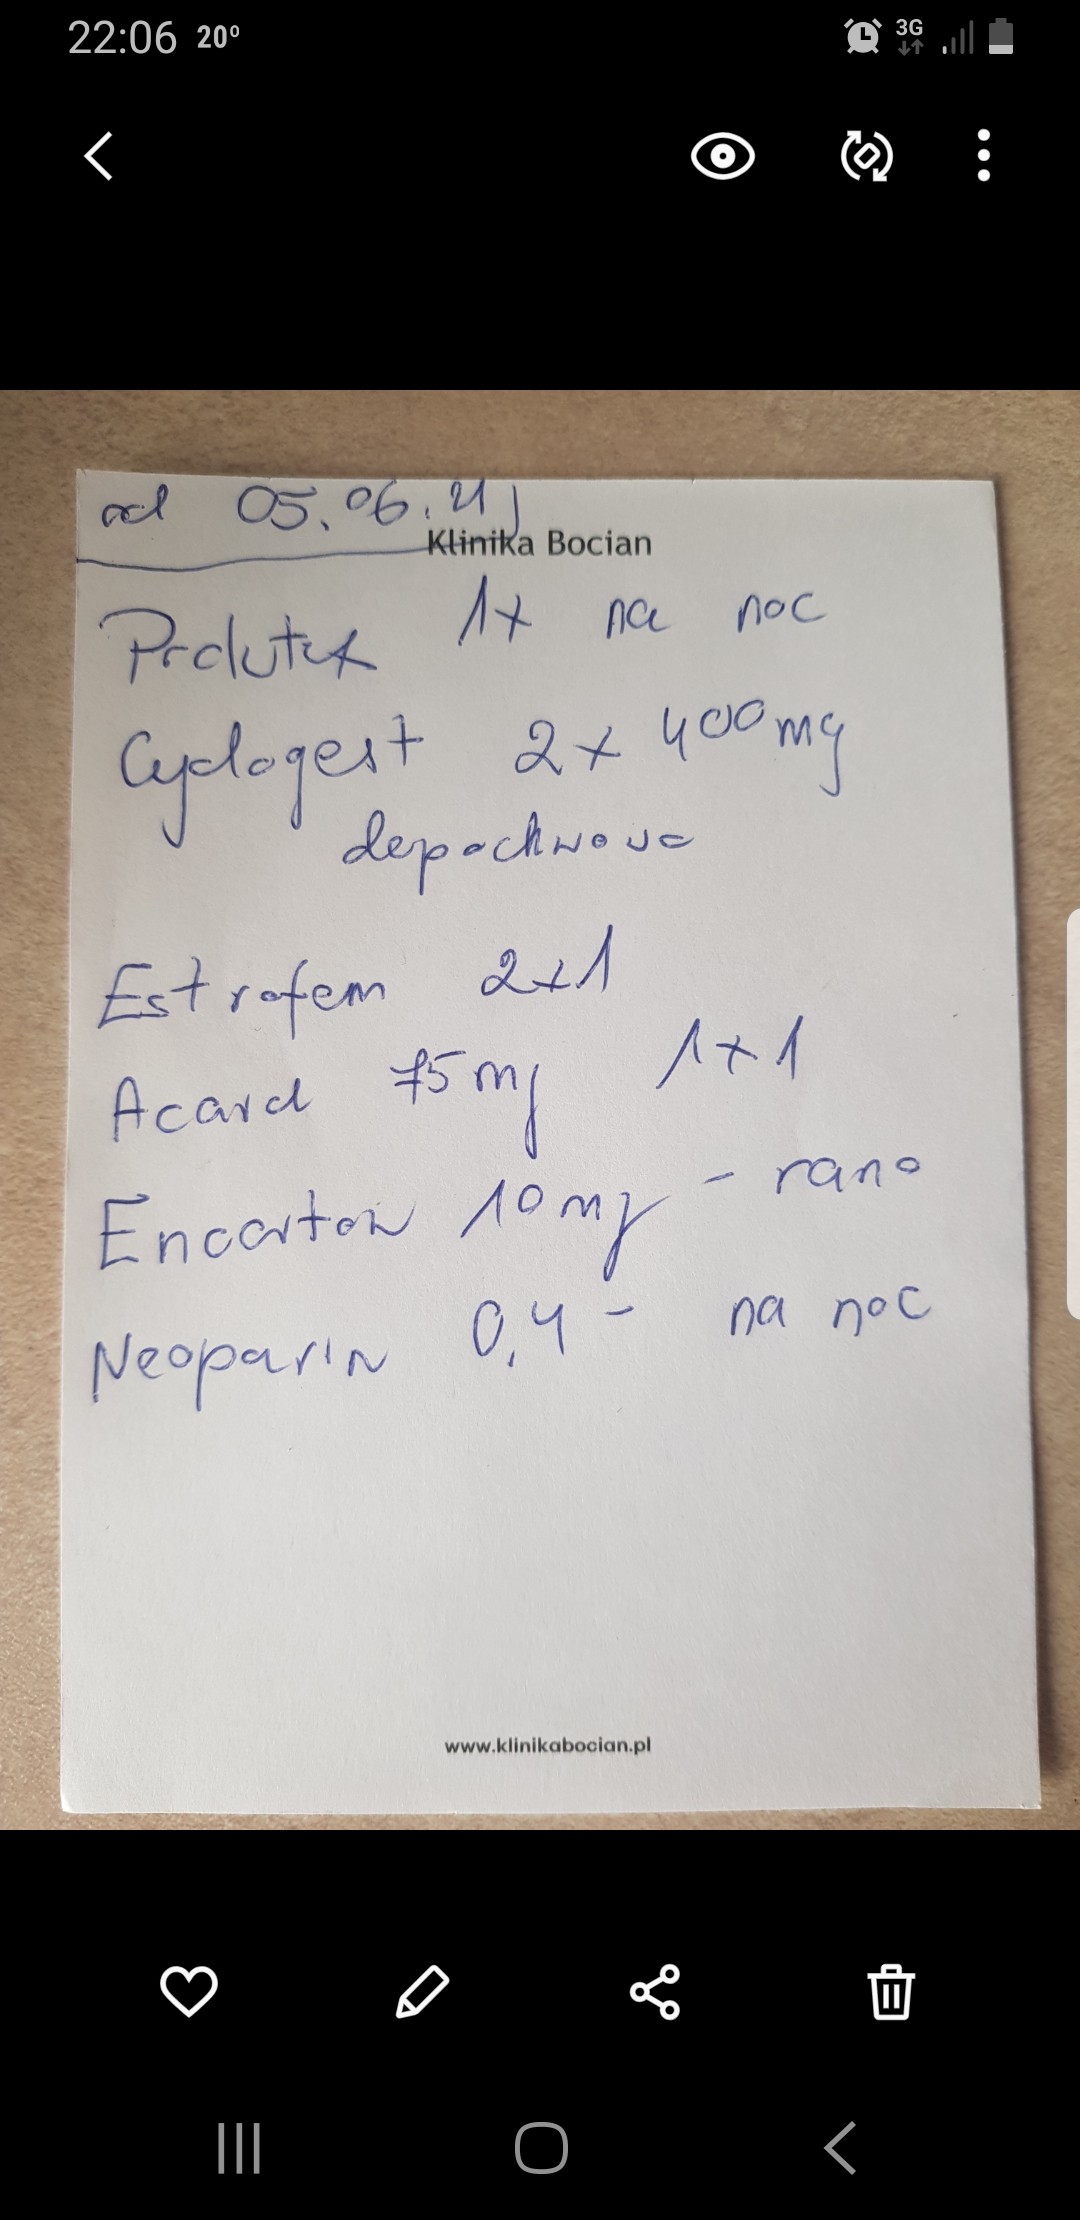 22:06 20° 3G
od 05.06.21
Klinika Bocian
Prolutex 1x na noc
Cyclogest 2x 400mg
dopochwowo
Estrofem 2x1
Acard 75mg 1x1
Encorton 10mg - rano
Neoparin 0,4 - na noc
www.klinikabocian.pl